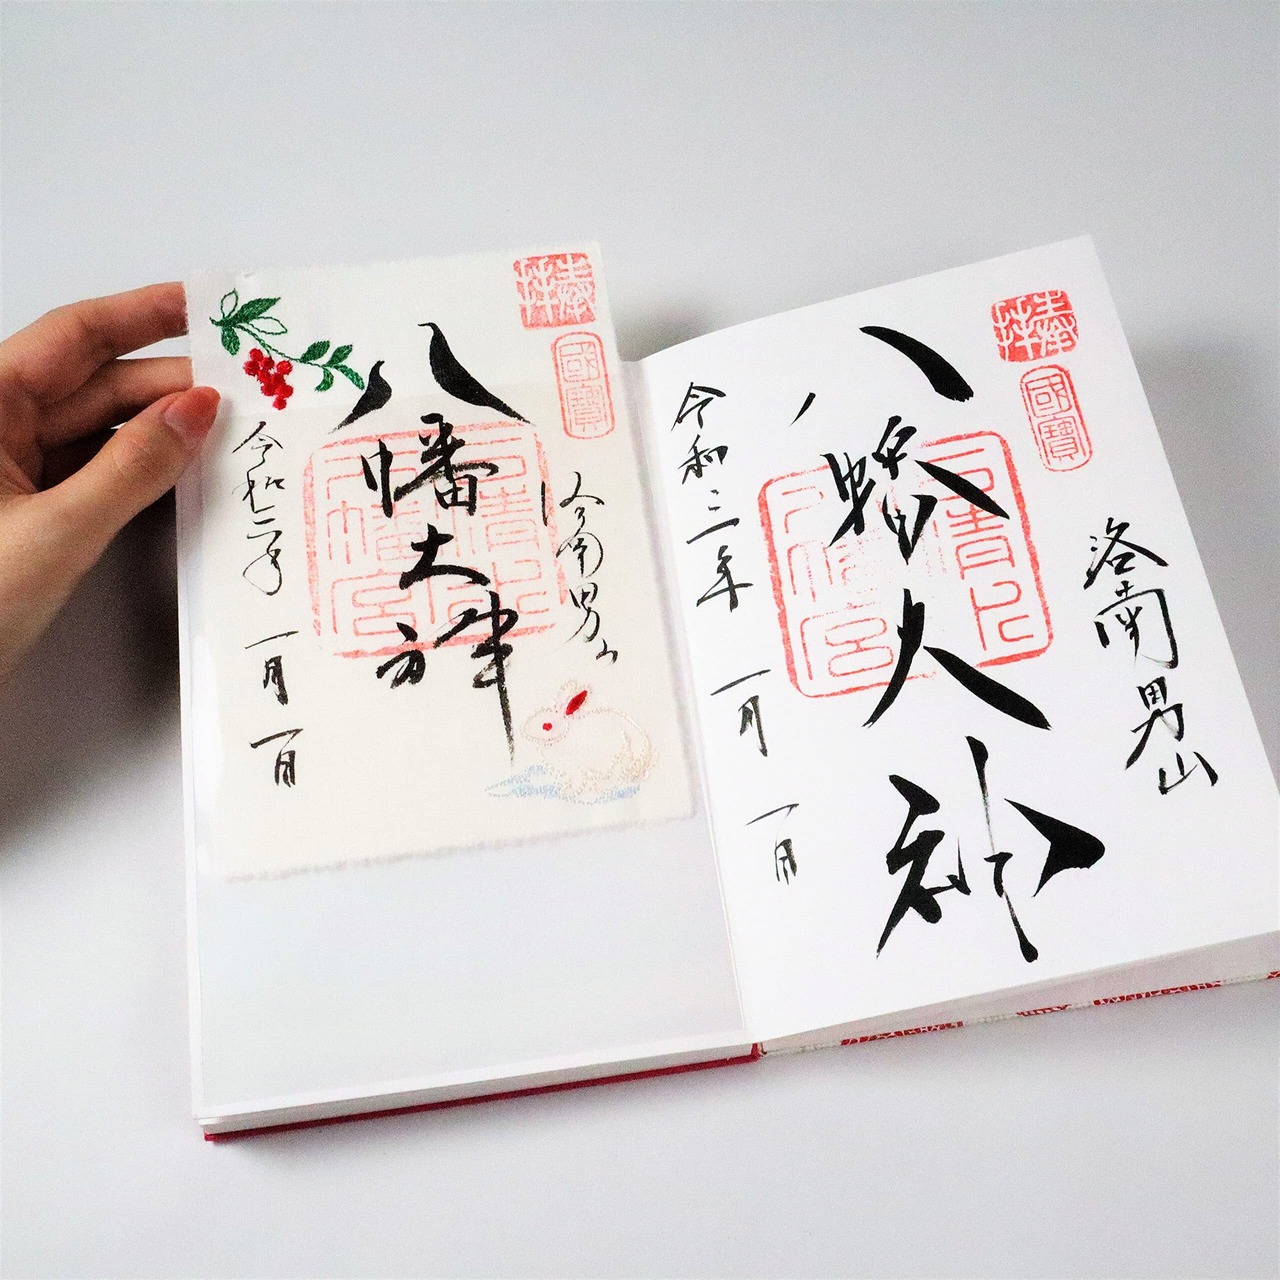 奉拝
國寶
洛南男山
八幡大神
石清水八幡宮
令和二年 一月 一日
奉拝
國寶
洛南男山
八幡大神
石清水八幡宮
令和三年 一月 一日